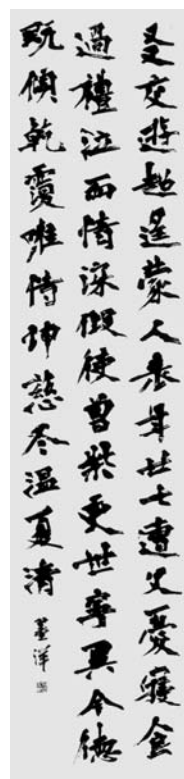 友交遊超遥蒙人表年廿七遭父憂寢食
過禮泣而情深假使曾柴更世寧異今德
既傾乾覆唯恃坤慈冬温夏清
董洋